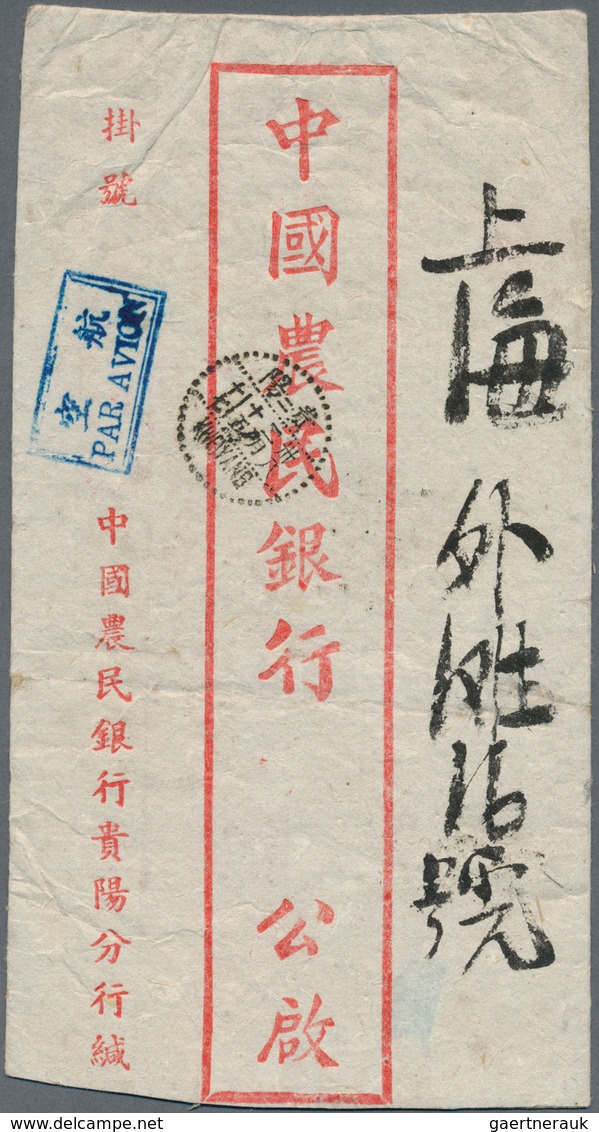 上海外灘15號
中國農民銀行 公啟
掛號
航空
PAR AVION
中國農民銀行貴陽分行緘
KWEIYANG
DELCAMPE.NET
gaertnerauk